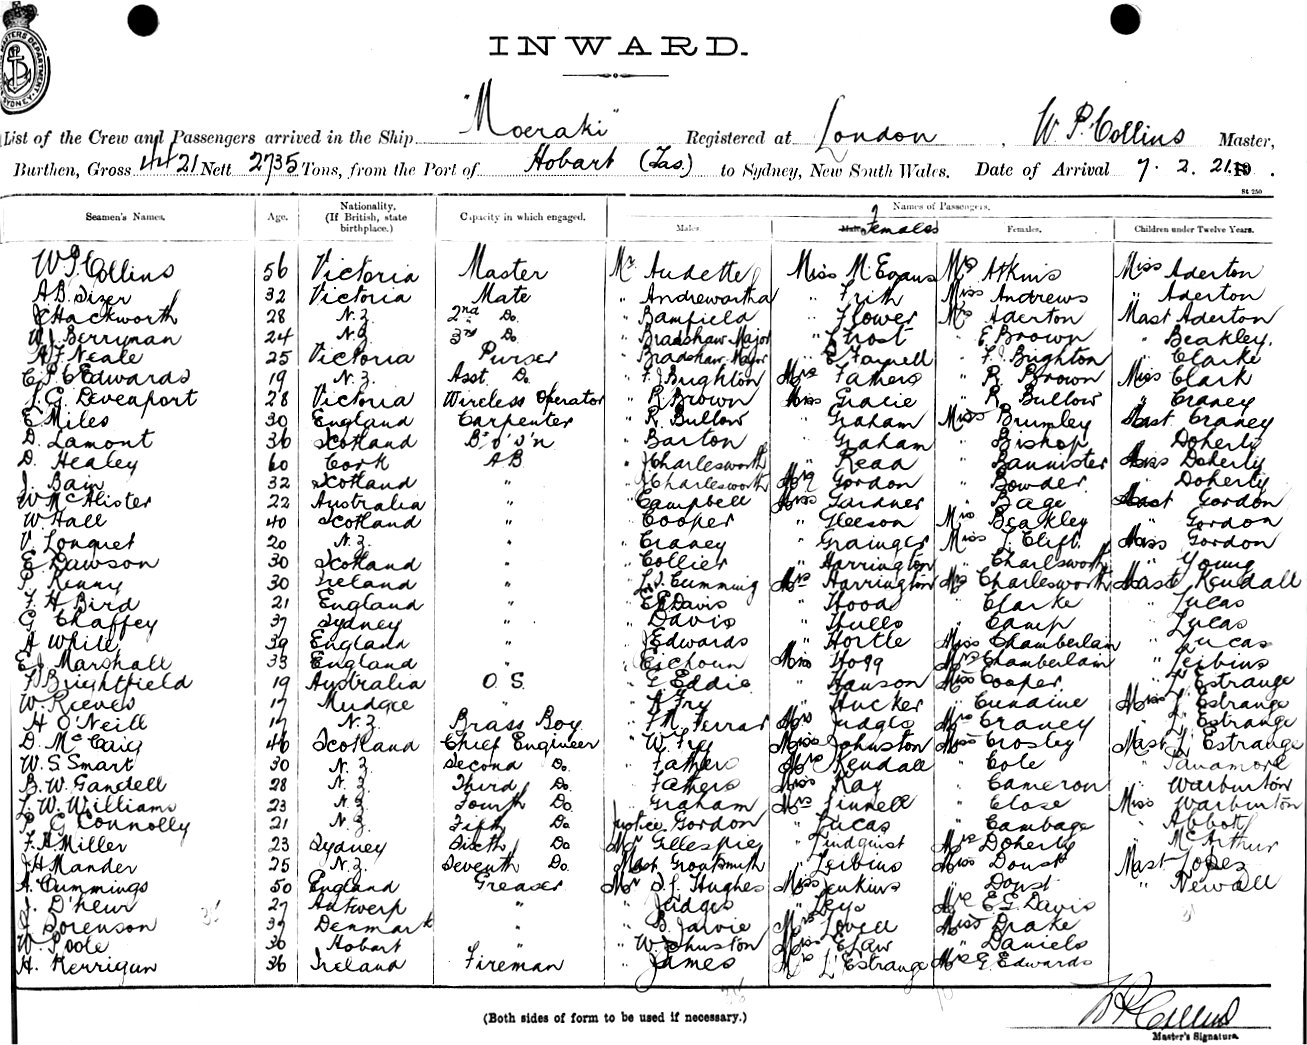 INWARD.
List of the Crew and Passengers arrived in the Ship "Moeraki" Registered at London, W. P. Collins Master,
Burthen, Gross 4421 Nett 2735 Tons, from the Port of Hobart (Tas.) to Sydney, New South Wales. Date of Arrival 7. 2. 21.
St 250
Seamen's Names. Age. Nationality. (If British, state birthplace.) Capacity in which engaged. Names of Passengers.
Males Females Females. Children under Twelve Years.
W. P. Collins 56 Victoria Master Mr Audette Miss M. Evans Mrs Atkins Miss Aderton
A. B. Sizer 32 Victoria Mate " Andrewartha " Frith Miss Andrews " Aderton
Hackworth 28 N.Z. 2nd Do. " Bamfield " Flower Mrs Aderton Mast Aderton
W. J. Berryman 24 N.Z. 3rd Do. " Bradshaw Major " Frost " E Brown " Beakley.
A. F. Neale 25 Victoria Purser " Bradshaw Major " E. Farrell " F. J. Brighton " Clarke
C. P. C. Edwards 19 N.Z. Asst. Do. " F. J. Brighton Mrs Fathers " R. Brown Miss Clark
J. G. Deveaport 28 Victoria Wireless Operator " R. Brown Miss Gracie " R. Bullow " Craney
E Miles 30 England Carpenter " R. Bullow " Graham Miss Brumley Mast. Craney
D. Lamont 36 Scotland B'o's'n " Barton " Graham " Bishop " Doherty
D. Healey 60 Cork A.B. " J Charlesworth " Read " Bannister Miss Doherty
J. Bain 32 Scotland " " J Charlesworth Mrs Gordon " Bowder " Doherty
W McAlister 22 Australia " " Campbell Miss Gardner " Bage Mast Gordon
W. Hall 40 Scotland " " Cooper " Gleeson Mrs Beakley " Gordon
V. Longuet 20 N.Z. " " Craney " Grainger Miss J. Clift. Miss Gordon
E Dawson 30 Scotland " " Collier " Harrington " Charlesworth " Young
P. Kenny 30 Ireland " " Cumming Mrs Harrington Mrs Charlesworth Mast Kendall
F. H. Bird 21 England " " E E Davis " Hood " Clarke " Lucas
G. Chaffey 37 Sydney " " Davis " Hulls " Camp " Lucas
A White 39 England " " J Edwards " Hortle Miss Chamberlain " Lucas
E. J. Marshall 33 England " " Eschoun Miss Hogg Mrs Chamberlain " Leibius
Brightfield 19 Australia O.S. " G. Eddie " Hanson Miss Cooper " L'Estrange
W. Reeves 17 Mudgee " " Fry " Hucker " Cunaine Miss L'Estrange
H O'Neill 17 N.Z. Brass Boy " F. M. Ferrar Mrs Judges Mrs Craney " L'Estrange
D. McCaig 46 Scotland Chief Engineer " W. Fry Miss Johnston Miss Crosley Mast L'Estrange
W. S. Smart 30 N.Z. Second Do. " Fathers Mrs Kendall " Cole
B. W. Gandell 28 N.Z. Third Do. " Fathers Miss Kay " Cameron " Warburton
L. W. Williams 23 N.Z. Fourth Do. " Graham Mrs Linnell " Close Miss Warburton
P. G Connolly 21 N.Z. Fifth Do. Justice Gordon " Lucas " Cambage " Abbott
F. A Miller 23 Sydney Sixth Do. Mr Gillespie " Lindquist Mrs Doherty " McArthur
J. H Mander 25 N.Z. Seventh Do. Mast. Groutsmith " Leibius Miss Doust Mast Jones
A. Cummings 50 England Greaser Mr J. J. Hughes Miss Jenkins " Doust " Newall
J. D'heur 27 Antwerp " " Judges " Leys Mrs E. E. Davis
J. Sorenson 37 Denmark " " B. Jarvie Mrs Lovell Miss Drake
W Poole 36 Hobart " " W. Johnston Miss E Law " Daniels
H. Kerrigan 36 Ireland Fireman " James Mrs L'Estrange Mrs G. Edwards
(Both sides of form to be used if necessary.)
W P Collins
Master's Signature.